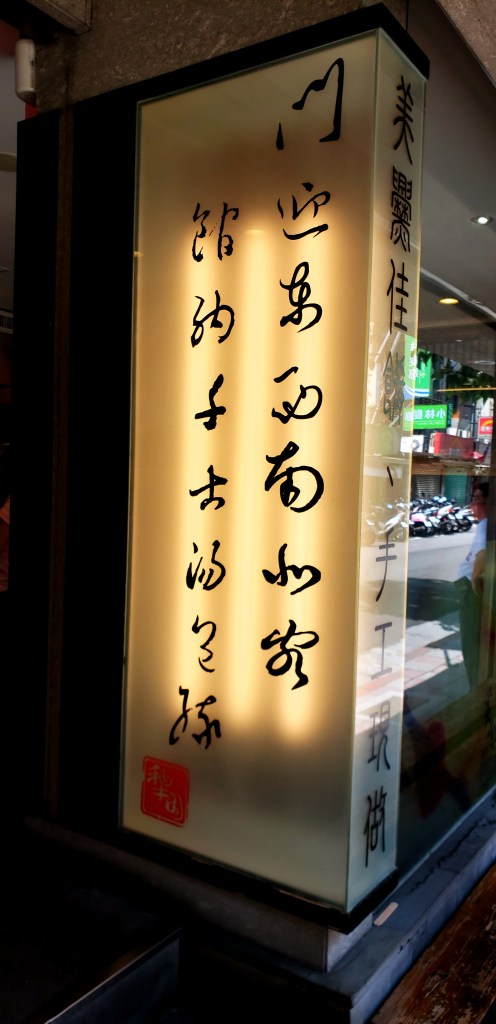 門迎東西南北客
館納千古湯包緣
美爨佳餚、手工現做
小林